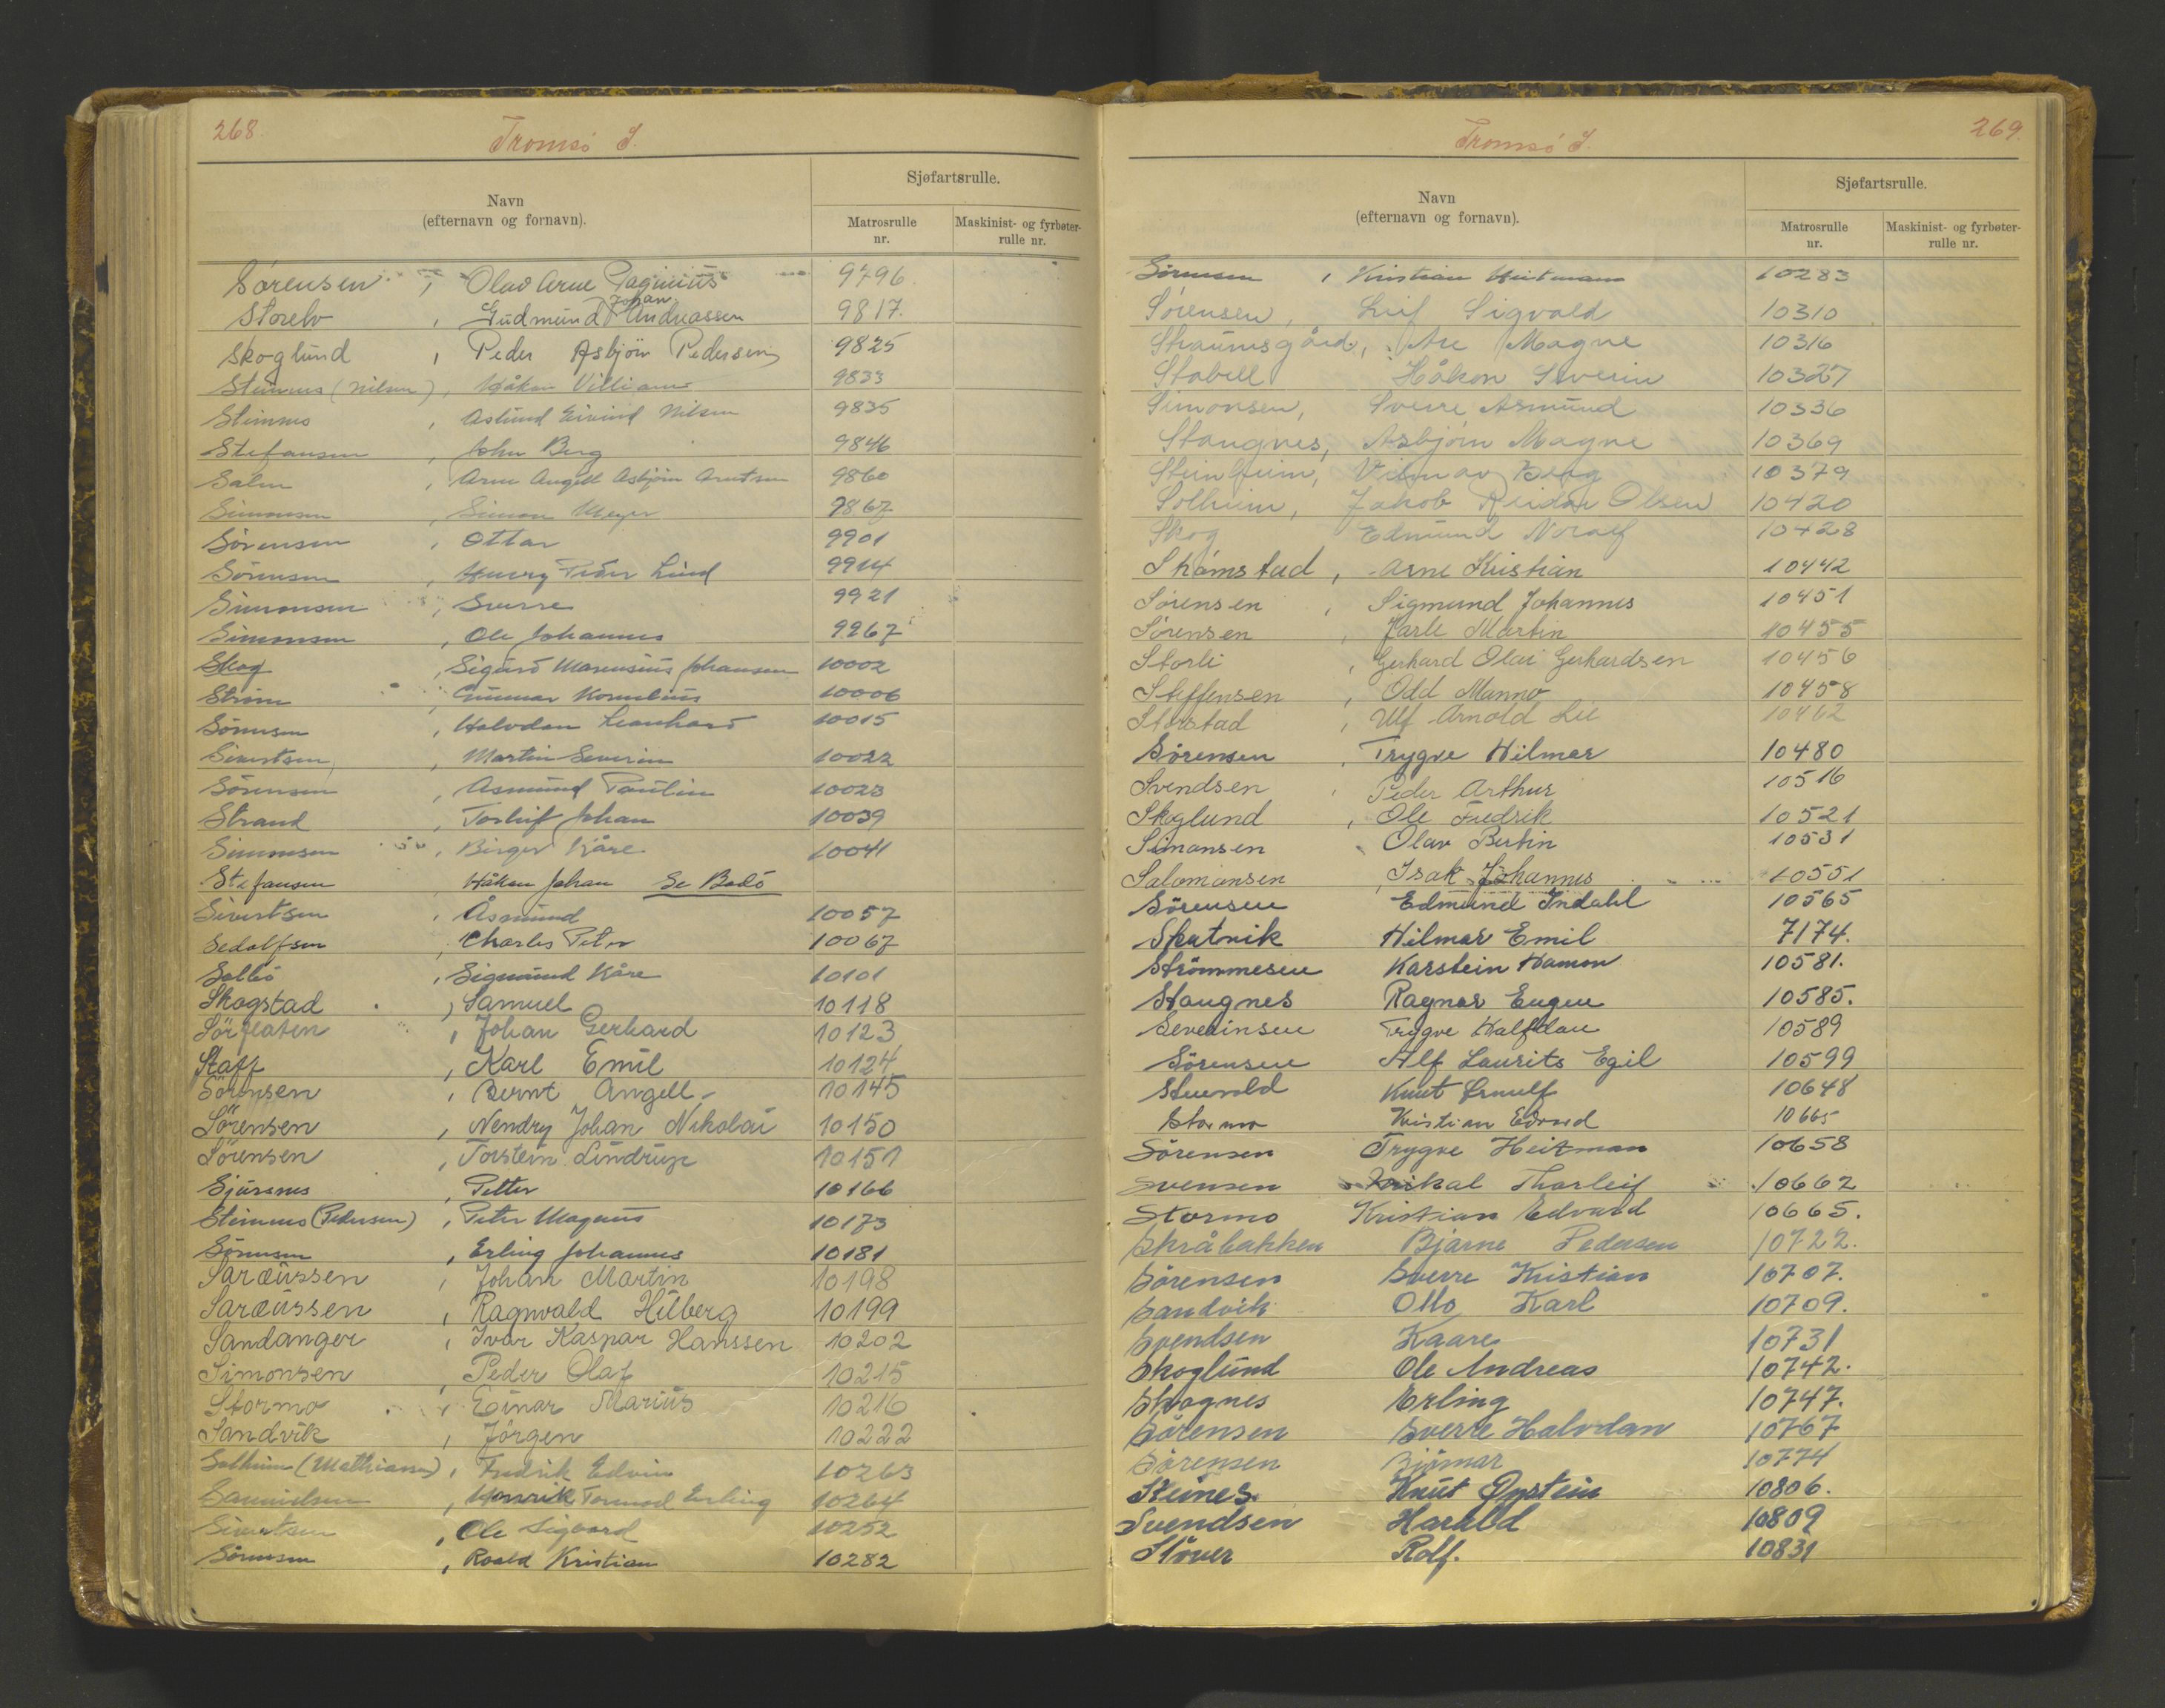 268.
Tromsö S.
Sjøfartsrulle.
Navn
(efternavn og fornavn).
Matrosrulle
nr.
Maskinist- og fyrbøter-
rulle nr.
Sörensen, Olav Arne 9796
Johan
Storelv, Gudmund Andreassen 9817.
Skoglund, Peder Asbjörn Pedersen 9825
Steinnes (Nilsen), Håkon Villiam 9833
Steinnes, Aslund Eivind Nilsen 9835
Stefansen, John Berg 9846
Salen, Arne Angell Asbjörn Arntsen 9860
Simonsen, Simon Meyer 9867
Sörensen, Ottar 9901
Sörensen, Henry Peder Lind 9914
Simonsen, Sverre 9921
Simonsen, Ole Johannes 9967
Skog, Sigurd Marensius Johansen 10002
Ström, Gunnar Kornelius 10006
Sörensen, Halvdan Leonhard 10015
Sivertsen, Martin Severin 10022
Sörensen, Asmund Paulin 10023
Strand, Torleif Johan 10039
Simonsen, Birger Kåre 10041
Stefansen, Håkon Johan Se Bodö
Sivertsen, Åsmund 10057
Sedolfsen, Charles Peter 10067
Solbö, Sigmund Kåre 10101
Skogstad, Samuel 10118
Sörfleaten, Johan Gerhard 10123
Staff, Karl Emil 10124
Sörensen, Bernt Angell 10145
Sörensen, Hendry Johan Nikolai 10150
Sörensen, Torstein Lindrup 10151
Sjursnes, Petter 10166
Steinnes (Pedersen), Peter Magnus 10173
Sörensen, Erling Johannes 10181
Saræussen, Johan Martin 10198
Saræussen, Ragnvald Hilberg 10199
Sandanger, Ivar Kaspar Hanssen 10202
Simonsen, Peder Olaf 10215
Stormo, Einar Marius 10216
Sandvik, Jörgen 10222
Solheim (Mathiassen), Fredrik Edvin 10263
Samuelsen, Henrik Tormod Erling 10264
Sivertsen, Ole Sigvard 10252
Sörensen, Roald Kristian 10282
269.
Tromsö S.
Sjøfartsrulle.
Navn
(efternavn og fornavn).
Matrosrulle
nr.
Maskinist- og fyrbøter-
rulle nr.
Sörensen, Kristian Heitmann 10283
Sörensen, Leif Sigvald 10310
Straumsgård, Are Magne 10316
Stabell Håkon Severin 10327
Simonsen, Sverre Asmund 10336
Stangnes, Asbjörn Magne 10369
Steinheim, Vilmar Berg 10379
Solheim, Jakob Reidar Olsen 10420
Skog Edmund Noralf 10428
Strömstad, Arne Kristian 10442
Sörensen, Sigmund Johannes 10451
Sörensen, Jarle Martin 10455
Storli, Gerhard Olai Gerhardsen 10456
Steffensen, Odd Manno 10458
Storstad, Ulf Arnold Lie 10462
Sörensen, Trygve Hilmar 10480
Svendsen, Peder Arthur 10516
Skoglund, Ole Fredrik 10521
Simonsen, Olav Bertin 10531
Salomonsen, Isak Johannes 10551
Sörensen Edmund Indahl 10565
Skatvik Hilmar Emil 7174.
Strömmesen Karstein Hamon 10581.
Stangnes Ragnar Eugen 10585.
Severinsen Trygve Halfdan 10589
Sörensen Alf Laurits Egil 10599
Stenvold Knut Ernulf 10648
Stormo Kristian Edvard 10665
Sörensen Trygve Heitman 10658
Svensen Mikal Thorleif 10662
Stormo Kristian Edvard 10665.
Skråbakken Bjarne Pedersen 10722.
Sörensen Sverre Kristian 10707.
Sandvik Otto Karl 10709.
Svendsen Kaare 10731
Skoglund Ole Andreas 10742.
Skognes Erling 10747.
Sörensen Sverre Halvdan 10767
Sörensen Hjörnar 10774
Steines. Knut Øystein 10806.
Svendsen Harald 10809
Stöver Rolf. 10831